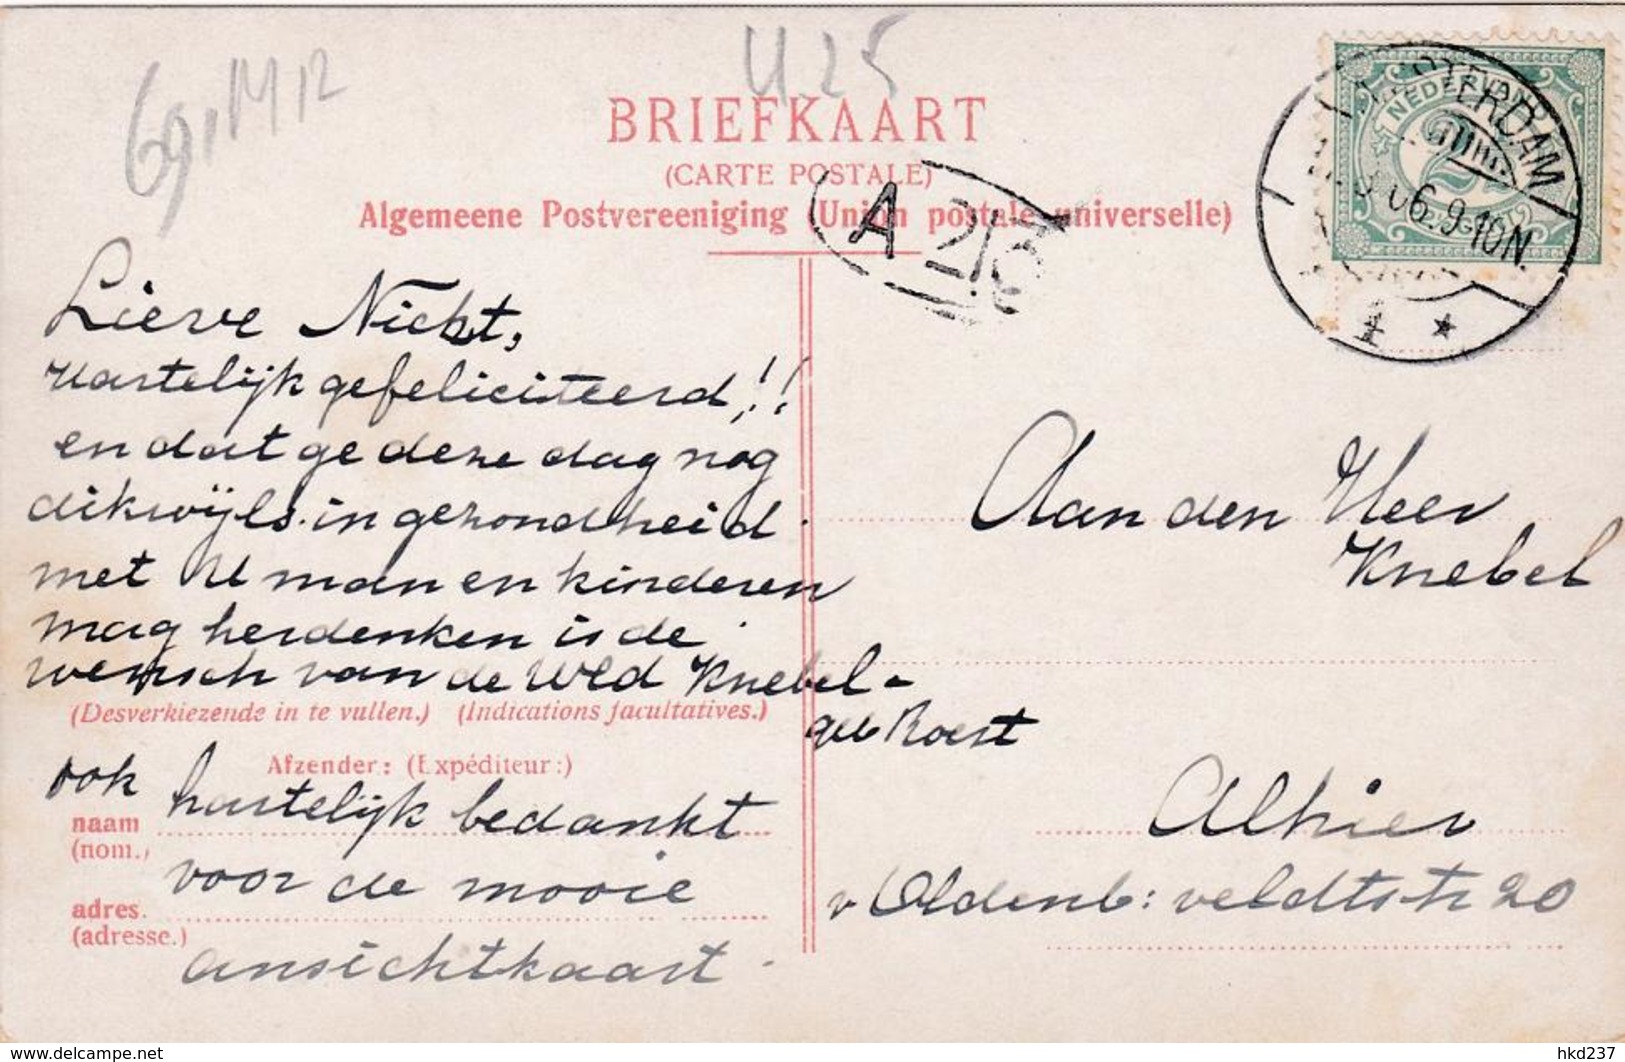 U25
69, M, 12
BRIEFKAART
(CARTE POSTALE)
Algemeene Postvereeniging (Union postale universelle)
NEDERLAND
2½
AMSTERDAM
06.9-10N.
4 *
A 2/6
Lieve Nicht,
Hartelijk gefeliciteerd!!
en dat ge deze dag nog
dikwijls in gezondheid
met U man en kinderen
mag herdenken is de
wensch van de Wed Knebel-
geb Roest
(Desverkiezende in te vullen.) (Indications facultatives.)
Afzender: (Expéditeur:)
ook hartelijk bedankt
naam
(nom.)
voor de mooie
adres.
(adresse.)
ansichtkaart
Aan den Heer
Knebel
Alhier
v Oldenb: veldtstr 20
www.delcampe.net
hkd237